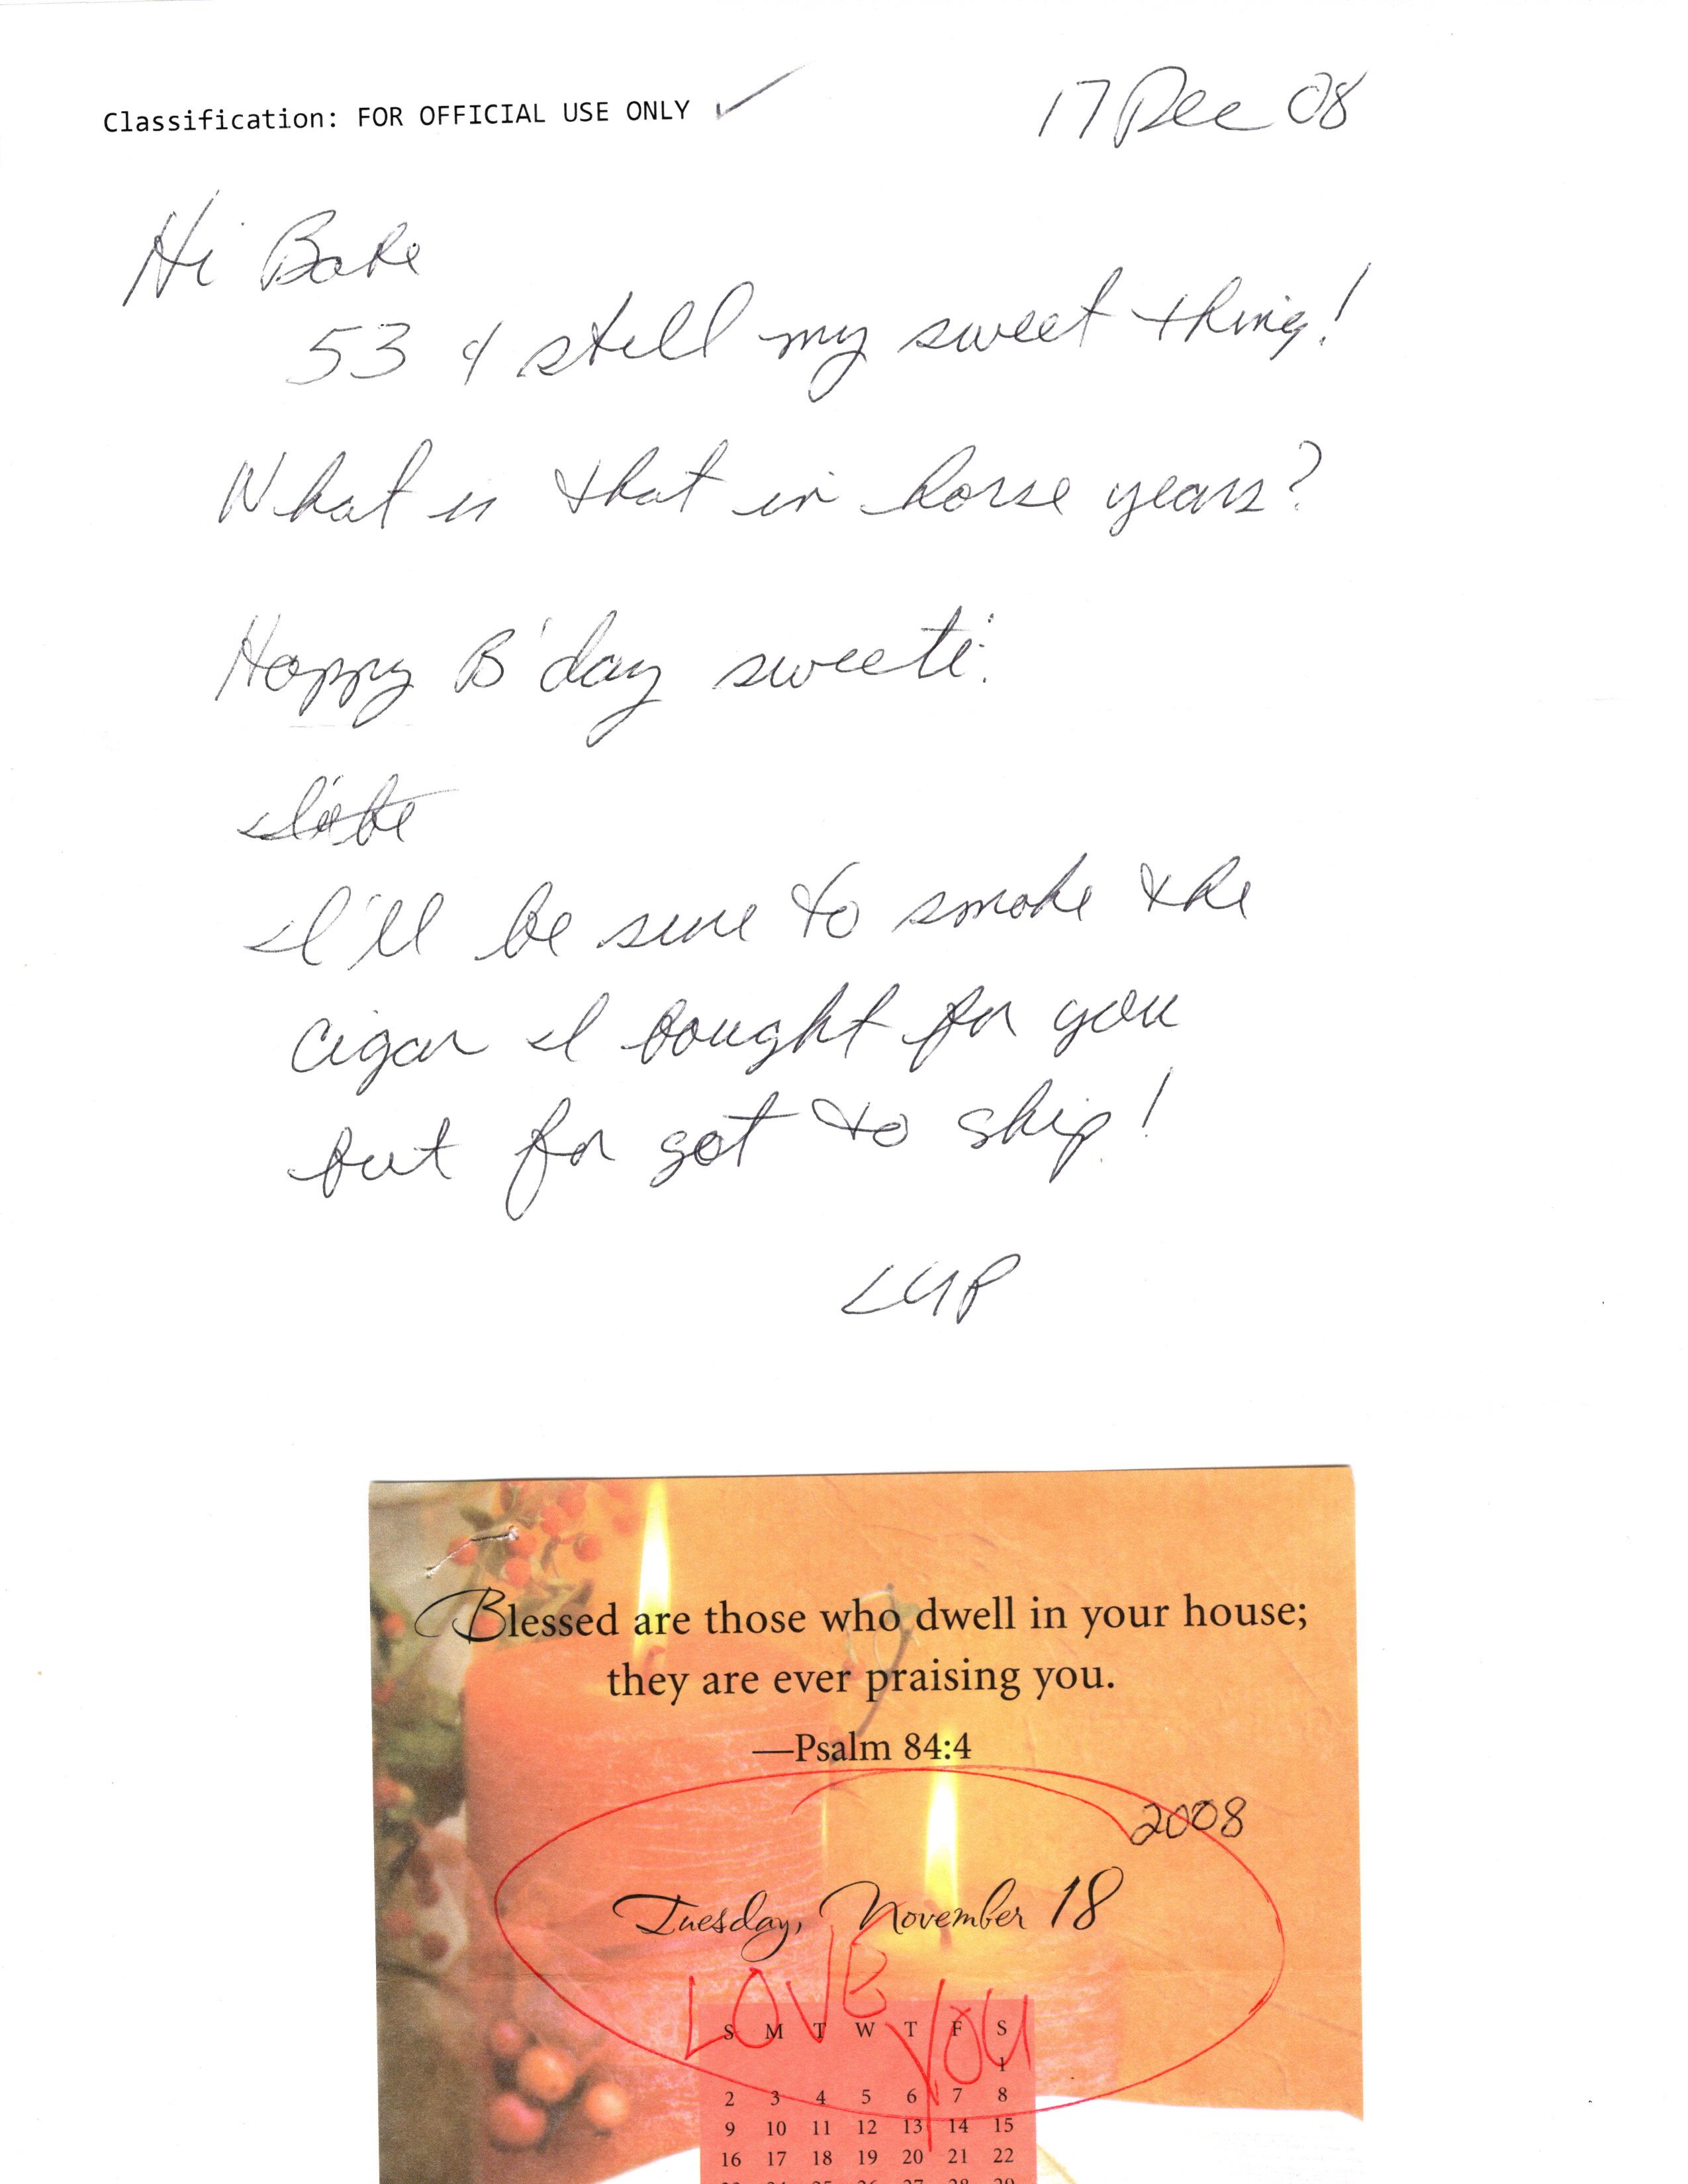 Classification: FOR OFFICIAL USE ONLY
17 Dec 08
Hi Babe
53 & still my sweet thing!
What is that in horse years?
Happy B'day sweetie.
I'll be sure to smoke the
cigar I bought for you
but for got to ship!
LYP
Blessed are those who dwell in your house;
they are ever praising you.
—Psalm 84:4
2008
Tuesday, November 18
LOVE YOU
S M T W T F S
1
2 3 4 5 6 7 8
9 10 11 12 13 14 15
16 17 18 19 20 21 22